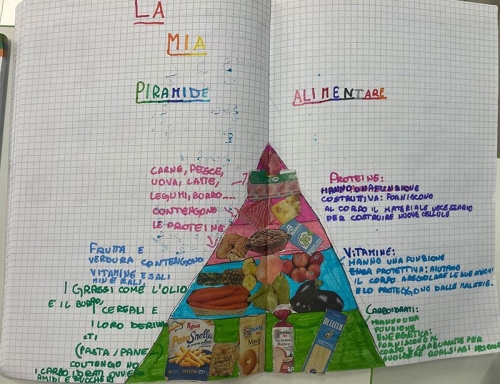 LA
MIA
PIRAMIDE
ALIMENTARE
CARNE, PESCE,
UOVA, LATTE,
LEGUMI, BURRO....
CONTENGONO
LE PROTEINE
PROTEINE:
HANNO UNA FUNZIONE
COSTRUTTIVA: FORNISCONO
AL CORPO IL MATERIALE NECESSARIO
PER COSTRUIRE NUOVE CELLULE
FRUTTA E
VERDURA CONTENGONO
VITAMINE E SALI
MINERALI
VITAMINE:
HANNO UNA FUNZIONE
PROTETTIVA: AIUTANO
IL CORPO
E LO PROTEGGONO DALLE MALATTIE.
I GRASSI COME L'OLIO
E IL BURRO,
I CEREALI E
I LORO DERIVA
TI
(PASTA / PANE)
CONTENGONO
I CARBOIDRATI OVVERO
AMIDI E ZUCCHERI
CARBOIDRATI:
HANNO UNA
FUNZIONE
ENERGETICA:
FORNISCONO AL
CORPO
SVOLGERE QUALSIASI
Snella